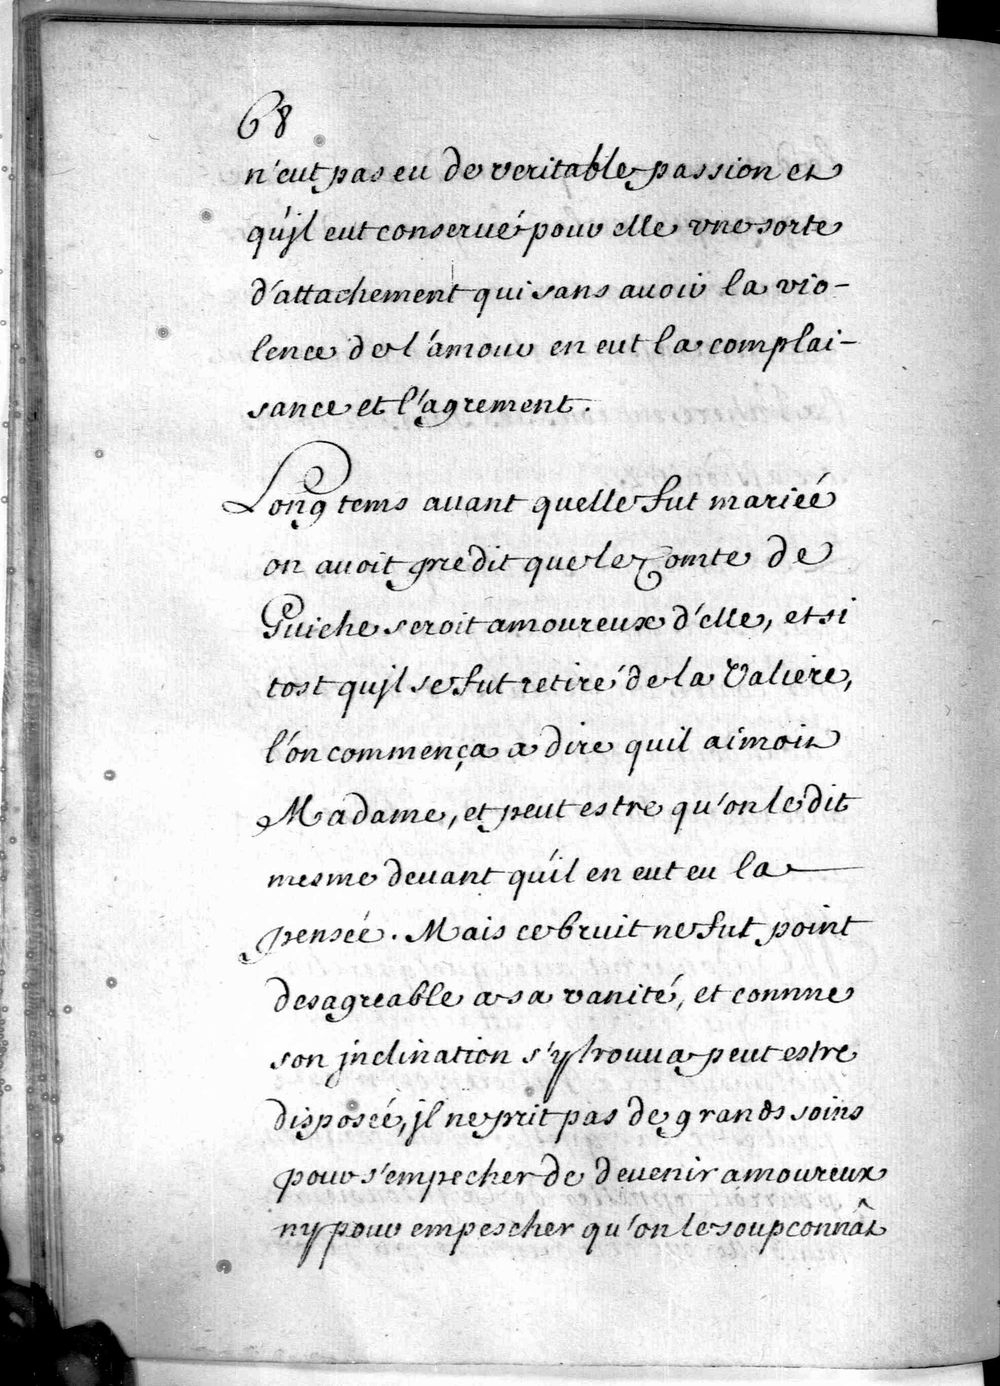 68
n'eut pas eu de veritable passion et
qu'jl eut conserué pour elle vne sorte
d'attachement qui sans auoir la vio-
lence de l'amour en eut la complai-
sance et l'agrement.
Long tems auant quelle fut mariéé
on auoit predit que le Comte de
Guiche seroit amoureux d'elle, et si
tost qujl se fut retiré de la Valiere,
l'on commença a dire quil aimoit
Madame, et peut estre qu'on le dit
mesme deuant qu'il en eut eu la
penséé. Mais ce bruit ne fut point
desagreable a sa vanité, et comme
son jnclination s'y trouua peut estre
disposéé, jl ne prit pas de grands soins
pour s'empecher de deuenir amoureux
ny pour empescher qu'on le soupconnât